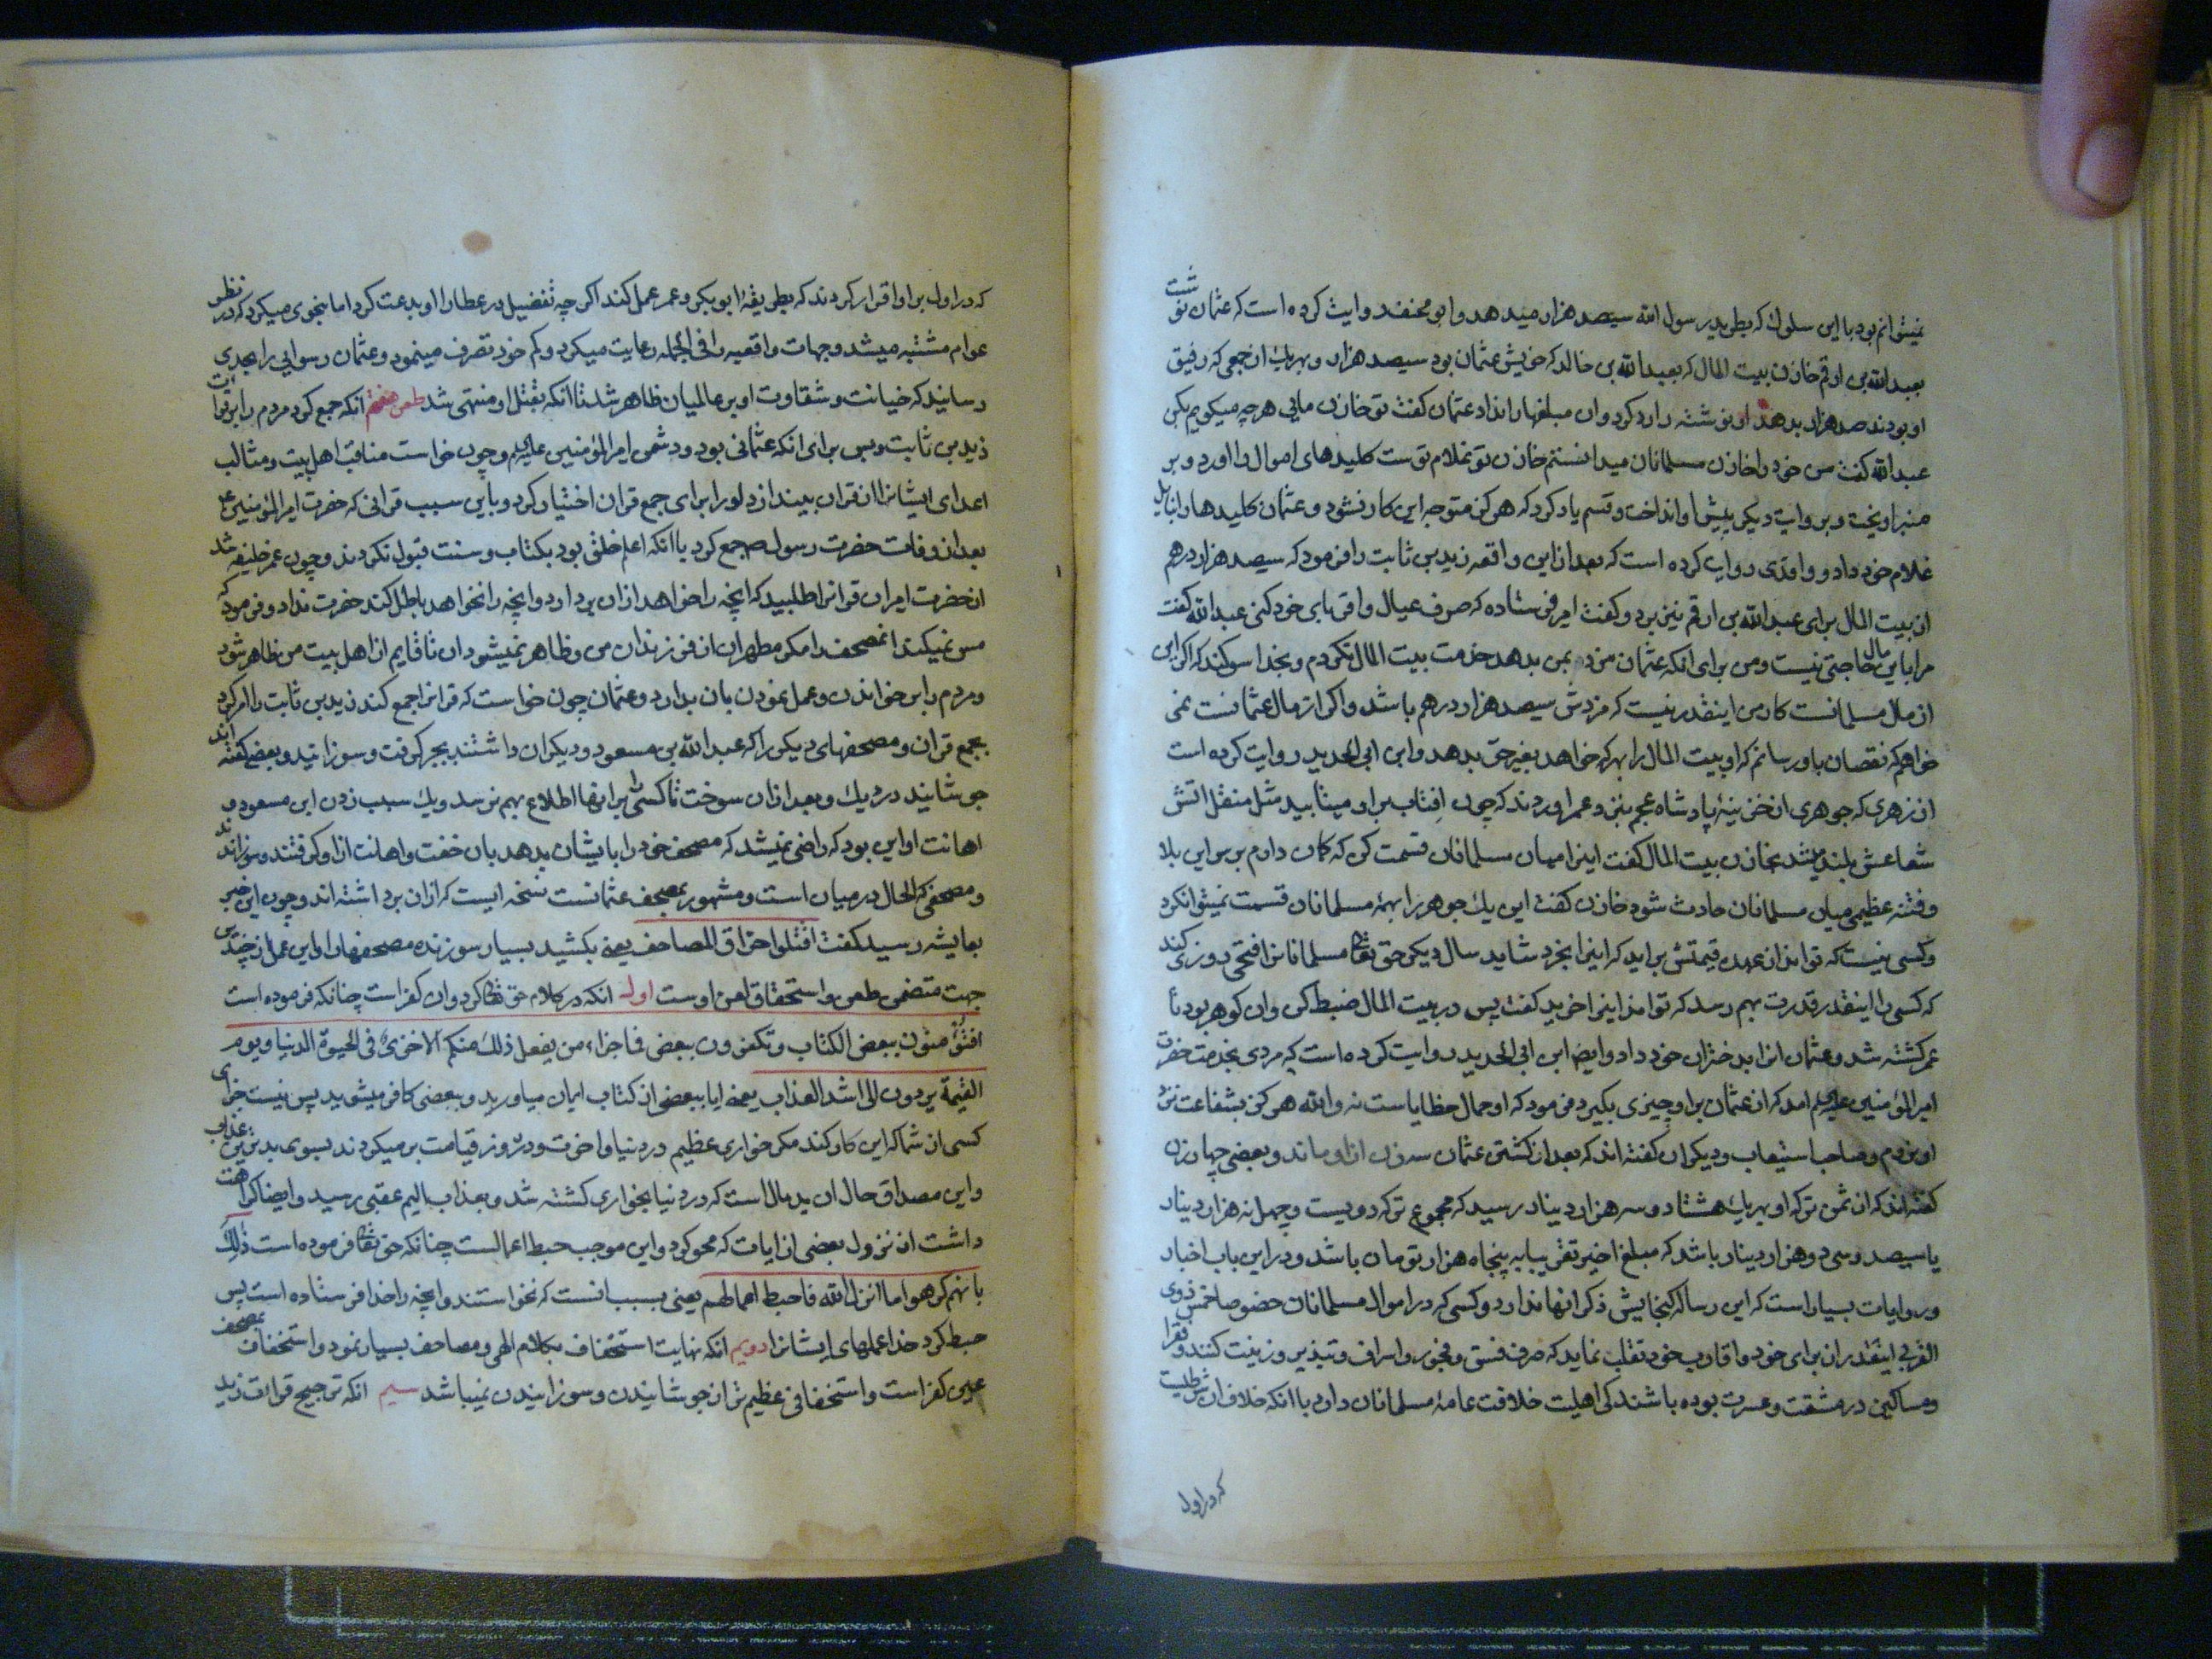 نمیتوانم بود با این سلوک که بطرید رسول الله سیصد هزار میدهد و ابو مخنف روایت کرده است که عثمان نوشت
بعبدالله بن ارقم خازن بیت المال که بعبدالله بن خالد که خویش عثمان بود سیصد هزار و بهر یک از جمعی که رفیق
او بودند صد هزار بدهد او نوشته را رد کرد و ان مبلغها را نداد عثمان کفت تو خازن مایی هر چه میکویم بکن
عبدالله کفت من خود را خازن مسلمانان میدانستم خازن تو غلام توست کلیدهای اموال را اورد و بر
منبر اویخت و بروایت دیکر پیش او انداخت و قسم یاد کرد که هرکز متوجه این کار نشود و عثمان کلیدها را بنایل
غلام خود داد و واقدی روایت کرده است که بعد از این واقعه زید بن ثابت را فرمود که سیصد هزار درهم
از بیت المال برای عبدالله بن ارقم نیز برد و کفت امیر فرستاده که صرف عیال و اقربای خود کنی عبدالله کفت
مرا باین مال حاجتی نیست و من برای انکه عثمان مزد بمن بدهد خدمت بیت المال نکردم و بخدا سوکند که اکر این
از مال مسلمانست کار من اینقدر نیست که مزدش سیصد هزار درهم باشد و اکر از مال عثمانست نمی
خواهم که نقصان باو رسانم که او بیت المال را بهر که خواهد بغیر حق بدهد و ابن ابی الحدید روایت کرده است
از زهری که جوهری از خزینهٔ پادشاه عجم بنزد عمر اوردند که چون افتاب بر او میتابید مثل منقل اتش
شعاعش بلند میشد بخازن بیت المال کفت اینرا میان مسلمانان قسمت کن که کمان دارم بر سر این بلا
و فتنه عظیمی میان مسلمانان حادث شود خازن کفت این یک جوهر را بهمهٔ مسلمانان قسمت نمیتوان کرد
و کسی نیست که تواند از عهده قیمتش براید که اینرا بخرد شاید سال دیکر حق تعالی مسلمانانرا فتحی روزی کند
که کسی را اینقدر قدرت بهم رسد که تواند اینرا خرید کفت پس در بیت المال ضبط کن و ان کوهر بود تا
عمر کشته شد و عثمان انرا بدختران خود داد و ایضا ابن ابی الحدید روایت کرده است که مردی بخدمت حضرت
امیر المؤمنین علیه السلام امد که از عثمان برای او چیزی بکیرد فرمود که او حمال خطایاست نه والله هرکز بشفاعت نزد
او نروم و صاحب استیعاب و دیکران کفته اند که بعد از کشتن عثمان سه زن از او ماند و بعضی چهار زن
کفته اند که از ثمن ترکه او بهر یک هشتاد و سه هزار دینار رسید که مجموع ترکه دویست و چهل نه هزار دینار
یا سیصد و سی و دو هزار دینار باشد که مبلغ اخیر تقریبا به پنجاه هزار تومان باشد و در این باب اخبار
و روایات بسیار است که این رساله کنجایش ذکر انها ندارد و کسی که در اموال مسلمانان خصوصا خمس ذوی
القربی اینقدر از برای خود و اقارب خود تقلب نماید که صرف فسق و فجور و اسراف و تبذیر و زینت کنند و فقرا
و مساکین در مشقت و عسرت بوده باشند کی اهلیت خلافت عامهٔ مسلمانان دارد با انکه خلاف ان شرطیست
که در اول
که در اول بر او اقرار کردند که بطریقهٔ ابوبکر و عمر عمل کند اکر چه تفضیل در عطا را او بدعت کرد اما بنحوی میکرد که در نظر
عوام مشتبه میشد و جهات واقعیه را فی الجمله رعایت میکرد و کم خود تصرف مینمود و عثمان رسوایی را بحدی
رسانید که خیانت و شقاوت او بر عالمیان ظاهر شد تا انکه بقتل او منتهی شد طعن هفتم انکه جمع کرد مردم را بر قرائت
زید بن ثابت و بس برای انکه عثمانی بود و دشمن امیر المؤمنین علیه السلام و چون خواست مناقب اهل بیت و مثالب
اعدای ایشانرا از قران بیندازد او را برای جمع قران اختیار کرد و باین سبب قرانی که حضرت امیر المؤمنین ع
بعد از وفات حضرت رسول ص جمع کرد با انکه اعلم خلق بود بکتاب و سنت قبول نکردند و چون عمر خلیفه شد
از حضرت امیر ان قرانرا طلبید که انچه را خواهد از ان بردارد و انچه را نخواهد باطل کند حضرت نداد و فرمود که
مس نمیکند ان مصحف را مکر مطهران از فرزندان من و ظاهر نمیشود ان تا قایم از اهل بیت من ظاهر شود
و مردم را بر خواندن و عمل نمودن بان بدارد و عثمان چون خواست که قرانرا جمع کند زید بن ثابت را امر کرد
بجمع قران و مصحفهای دیکر را که عبدالله بن مسعود و دیکران داشتند بجبر کرفت و سوزانید و بعضی کفته اند
جوشانید در دیک و بعد از ان سوخت تا کسی را بر انها اطلاع بهم نرسد و یک سبب زدن ابن مسعود و
اهانت او این بود که راضی نمیشد که مصحف خود را بایشان بدهد بان خفت و اهانت از او کرفتند و سوزاندند
و مصحفی که الحال در میان است و مشهور بمصحف عثمانست نسخه ایست که از ان برداشته اند و چون این خبر
بعایشه رسید کفت اقتلوا حراق المصاحف یعنی بکشید بسیار سوزنده مصحفها را و این عمل از چندین
جهت متضمن طعن و استحقاق لعن اوست اول انکه در کلام حق تعالی کرد و ان کفر است چنانکه فرموده است
افتؤمنون ببعض الکتاب و تکفرون ببعض فما جزاء من یفعل ذلک منکم الا خزی فی الحیوة الدنیا و یوم
القیمة یردون الی اشد العذاب یعنی ایا ببعضی از کتاب ایمان میاورید و ببعضی کافر میشوید پس نیست جزای
کسی از شما که این کار کند مکر خواری عظیم در دنیا و اخرت و در روز قیامت بر میکردند بسوی بدترین عذاب
و این مصداق حال ان بدمال است که در دنیا بخواری کشته شد و بعذاب الیم عقبی رسید و ایضا کراهت
داشت از نزول بعضی از ایات که محو کرد و این موجب حبط اعمالست چنانکه حق تعالی فرموده است ذلک
بانهم کرهوا ما انزل الله فاحبط اعمالهم یعنی بسبب انست که نخواستند و انچه را خدا فرستاده است پس
حبط کرد خدا عملهای ایشانرا دویم انکه نهایت استخفاف بکلام الهی و مصاحف بسیار نمود و استخفاف بمصحف
عین کفر است و استخفافی عظیم تر از جوشانیدن و سوزانیدن نمیباشد سیم انکه ترجیح قرائت زید